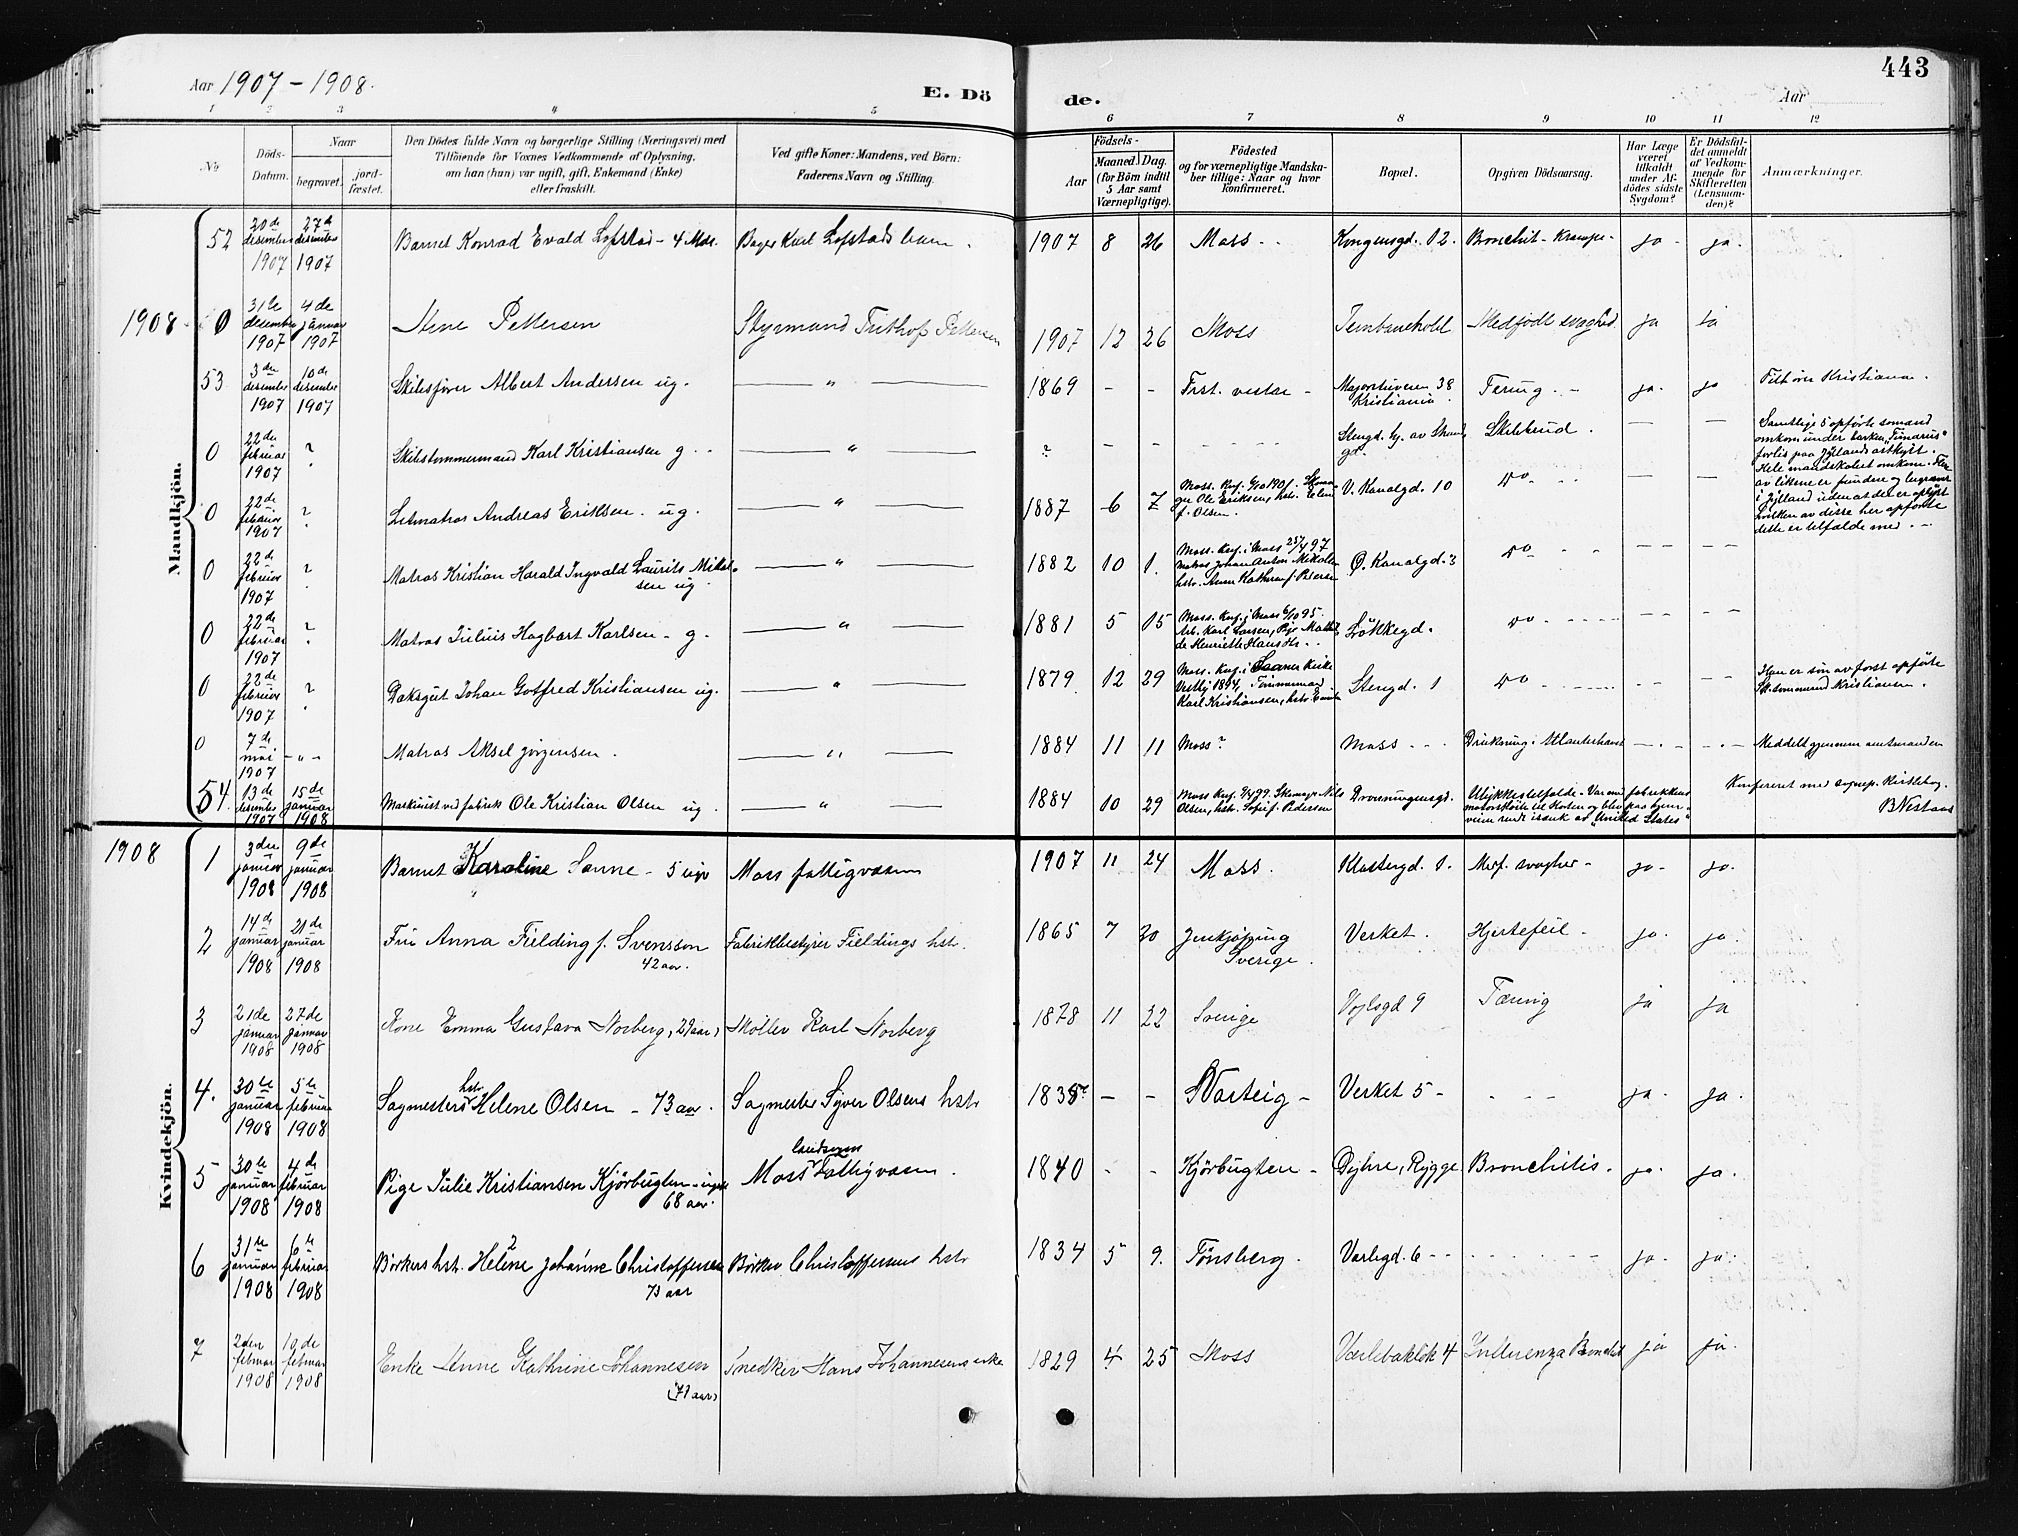 Aar 1907 - 1908.
E. Dö de.
Aar
443
1 2 3 4 5 6 7 8 9 10 11 12
No
Döds-Datum.
Naar begravet. jordfæstet.
Den Dödes fulde Navn og borgerlige Stilling (Næringsvei) med
Tilföiende for Voxnes Vedkommende af Oplysning,
om han (hun) var ugift, gift, Enkemand (Enke)
eller fraskilt.
Ved gifte Koner: Mandens, ved Börn:
Faderens Navn og Stilling.
Födsels-
Aar
Maaned. Dag.
(for Börn indtil
5 Aar samt
Værnepligtige).
Födested
og for værnepligtige Mandskaber tillige: Naar og hvor
konfirmeret.
Bopæl.
Opgiven Dödsaarsag.
Har Læge været tilkaldt under Afdödes sidste Sygdom?
Er Dödsfaldet anmeldt af Vedkommende for Skifteretten (Lensmanden)?
Anmærkninger.
Mandkjön.
52 20de desember 1907 27de desember 1907 Barnet Konrad Evald Lofstad - 4 Mdr. Bager Karl Lofstads barn. 1907 8 26 Moss Kongensgd. 12. Bronchit - Krampe - ja - ja.
1908 0 31te desember 1907 4de januar 1907 Arne Pettersen Styrmand Frithof Pettersen 1907 12 26 Moss Jernbanehold Medfødt svaghed ja ja
53 3die desember 1907 10de desember 1907 Skibsfører Albert Andersen ug. " 1869 - - Majorstuveien 38 Kristiania Tering. - ja. ja Kristiania.
0 22de februar 1907 ? Skibstømmermand Karl Kristiansen g. " ? - - Skibbrud. - -
Samtlige 5 opførte sømænd
omkom under barken "Timarus"
forlis paa Jyllands østkyst.
Hele mandskabet omkom.
av likene er fundne og begravet
i Jylland uden at det er oplyst
hvilken av disse her opførte
dette er tilfælde med. -
0 22de februar 1907 ? Letmatros Andreas Eriksen. ug. " 1887 6 7 Moss. Ole Eriksen, f. Olsen. V. Kanalgd. 10 Do - - -
0 22de februar 1907 ? Matros Kristian Harald Ingvald Laurits Mikalsen ug " 1882 10 1. Moss. Knf. i Moss 25/4 97 Matros Johan Anton hstr. Anne Kathrine f. Petersen Ø. Kanalgd. 3 Do - -
0 22de februar 1907 ? Matros Julius Hagbart Karlsen - g. " 1881 5 15 Moss. Knf. i Moss 6/10 95. Arb. Karl Larsen, Pige Mathilde Henriette Løkkegd. Do - -
0 22de februar 1907 ? Daksgut Johan Gotfred Kristiansen ug. " 1879 12 29 Moss. Knf. i Saaner Kirke Vestby 1894, Tømmermand Karl Kristiansen, hstr Stengd. 1 Do - -
Han er søn av først opførte Kristiansen.
0 7de mai 1907 - " - Matros Aksel Jørgensen. " 1884 11 11 Moss? Moss - - Drukning i Atlanterhavet - - Meddelt gjennem amtmanden
54. 13de desember 1907 15de januar 1908 Maskinist ved fabrik Ole Kristian Olsen ug. " 1884 10 29 Moss. Olsen, hstr. f. Pedersen Dronningensgd. Ulykkestilfælde - Var med fabrikkens motorskøite til Horten og blev paa hjemveien rendt i sænk av "United States"
Konfereret med sogn. Kirkebog.
Kvindekjön.
1908 1 3die januar 1908 9de januar 1908 Barnet Karoline Sanne - 5 uger Moss fattigvæsen 1907 11 24 Moss. Klostergd. 1. Medf. svaghet - ja - ja.
2 14de januar 1908 21de januar 1908 Fru Anna Fielding f. Svensson 42 aar. Fabrikbestyrer Fieldings hstr. 1865 7 30 Jenkjøping Sverige. Verket. Hjertefeil - ja. ja.
3 21de januar 1908 27de januar 1908 Kone Emma Gustava Norberg, (29 aar) Møller Karl Norberg 1878 11 22 Sverige Voglsgd 9 Tæring ja ja
4. 30te januar 1908 5te februar 1908 Sagmesters hstr Helene Olsen - 73 aar. Sagmester Syver Olsens hstr 1835? - - Varteig - Verket 5 - - - - ja. ja.
5 30te januar 1908 4de februar 1908 Pige Julie Kristiansen Kjørbugten - ugift 68 aar. Moss landsogn fattigvæsen. 1840 - - Kjørbugten - Dyhre, Rygge Bronchitis. ja. ja.
6 31te januar 1908 6te februar 1908 Børkers hst. Helene Johanne Christoffersen 73 aar Børker Christoffersens hstr 1834 5 9. Tønsberg. Varlegd. 6 - - - - - ja. ja.
7 2den februar 1908 10de februar 1908 Enke Anne Kathrine Johannesen Snedker Hans Johannesens enke 1829 4 25 Moss Værlebakken 4 Influenza Bronchit ja ja.